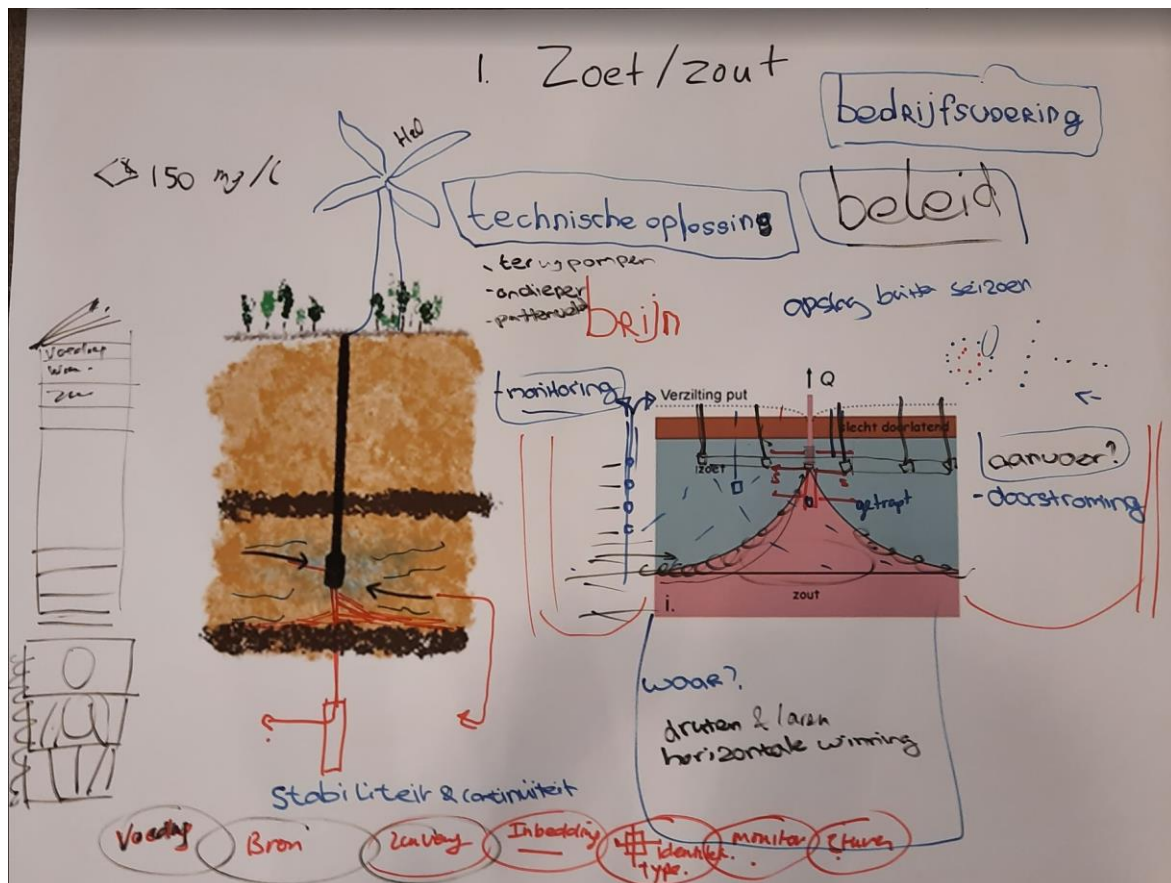 1. Zoet/zout
bedrijfsvoering
150 mg/l
technische oplossing
beleid
terugpompen
-ondieper
-puttenveld
brijn
opslag buiten seizoen
Voeding
monitoring
Verzilting put
Q
slecht doorlatend
zoet
getrapt
aanvoer?
-doorstroming
zout
i.
waar?
druten & laren
horizontale winning
Stabiliteit & continuïteit
Voeding
Bron
Zuivering
Inbedding
identiek.
type.
monitor
Sturen